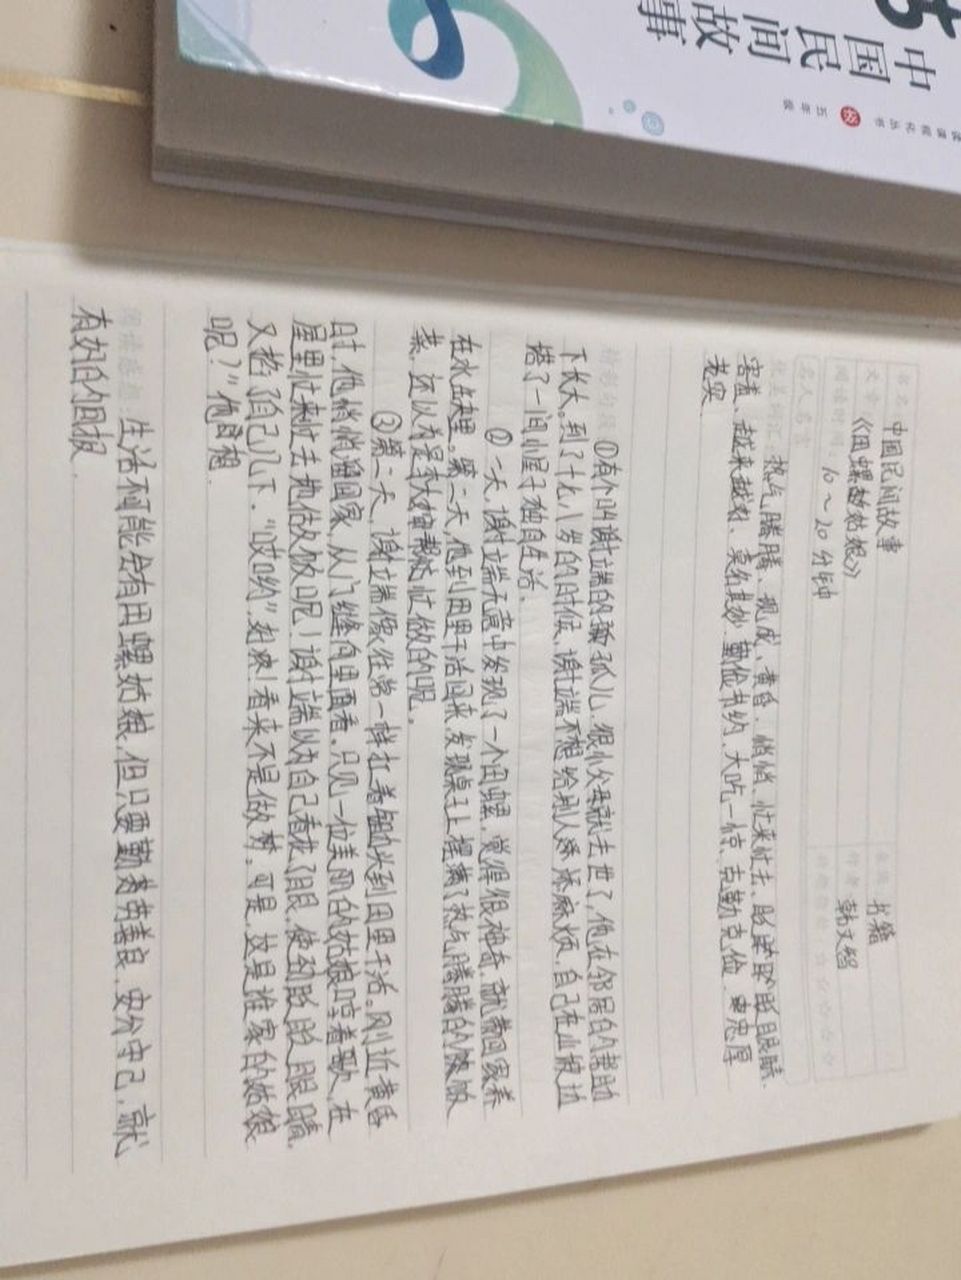 中国民间故事
五年级
书名 中国民间故事 类别 书籍
文章 《田螺姑娘》 作者 韩文智
阅读时间: 10～20分钟
名人名言
热气腾腾、现成、黄昏、悄悄、忙来忙去、眨眼睛、
容貌、越来越好、莫名其妙、勤俭书约、大吃一惊、克勤克俭、忠厚
老实
精彩句段 ①有个叫谢端的孤儿,很小父母就去世了,他在邻居的帮助
下长大。到了十七八岁的时候,谢端不想给别人添麻烦,自己在山坡边
搭了一间小屋子独自生活。
②一天,谢端无意中发现了一个田螺,觉得很神奇,就带回家养
在水缸里。第二天,他到田里干活回来,发现桌上摆满了热气腾腾的饭
菜,还以为是大婶帮忙做的呢。
③第二天,谢端像往常一样扛着锄头到田里干活。刚近黄昏
时,他悄悄溜回家,从门缝向里面看。只见一位美丽的姑娘哼着歌,在
屋里忙来忙去地做饭呢!谢端以为自己看花了眼,使劲眨眨眼睛,
又掐了自己几下,“哎哟”起来!看来不是做梦。可是,这是谁家的姑娘
呢?”他想
阅读感想: 生活不可能会有田螺姑娘,但只要勤劳善良、安分守己,就
有好的回报.